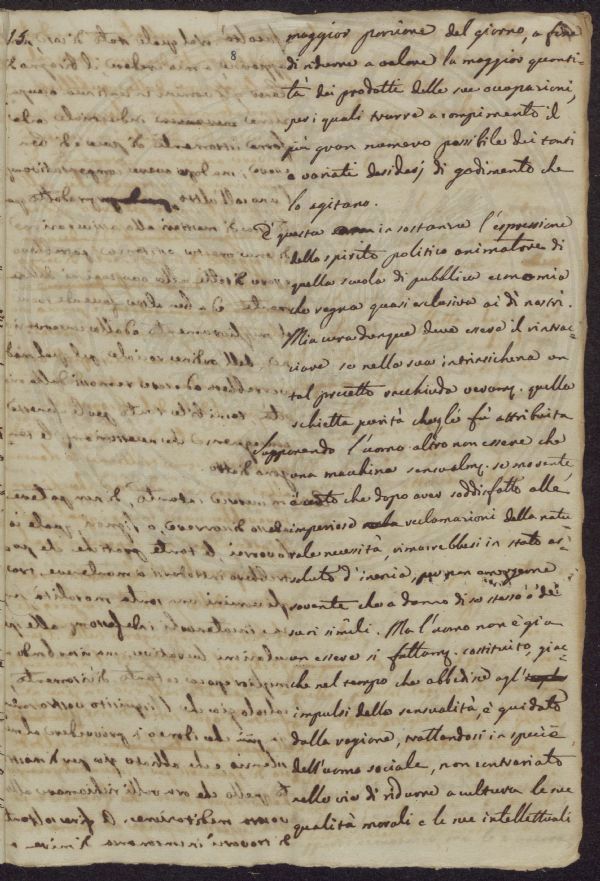 15.
8
maggior porzione del giorno, a fine
di ridurre a valore la maggior quanti-
tà dei prodotti delle sue occupazioni,
per i quali trarre a compimento il
più gran numero possibile dei tanti
e variati desiderj di godimento che
lo agitano.
È questa in sostanza l'espressione
dello spirito politico animatore di
quella scuola di pubblica economia
che regna quasi esclusiva ai dì nostri.
Mia cura dunque deve essere il rintrac-
ciare se nella sua intrinsichezza un
tal precetto racchiuda veram.e quella
schietta purità che gli fù attribuita
Supponendo l'uomo altro non essere che
una macchina sensualm.e se movente,
è certo che dopo aver soddisfatto alle
imperiose reclamazioni della natu-
rale necessità, rimarrebbesi in stato as-
soluto d'inerzia, per non
sovente che a danno di se stesso o de'
suoi simili. Ma l'uomo non è già
un essere sì fattam.e costituito, giac-
che nel tempo che abbidisce agl'
impulsi della sensualità, è guidato
dalla ragione, trattandosi in specie
dell'uomo sociale, non contrariato
nella via di ridurre a cultura le sue
qualità morali e le sue intellettuali